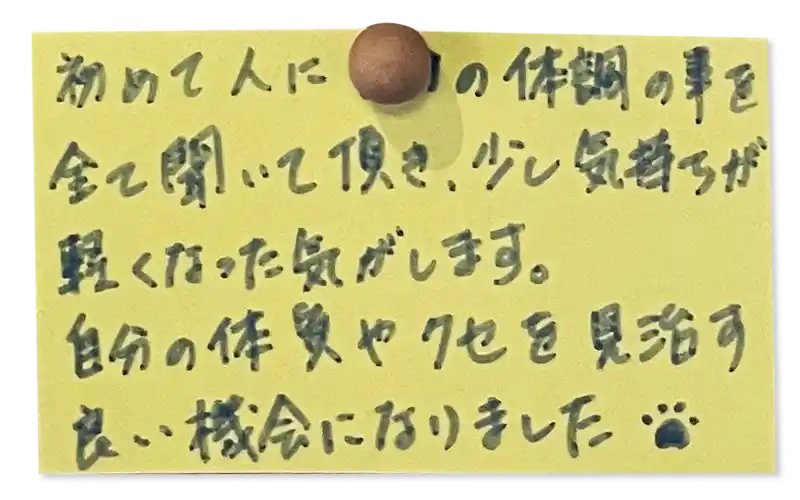 初めて人に の体調の事を
全て聞いて頂き、少し気持ちが
軽くなった気がします。
自分の体質やクセを見治す
良い機会になりました